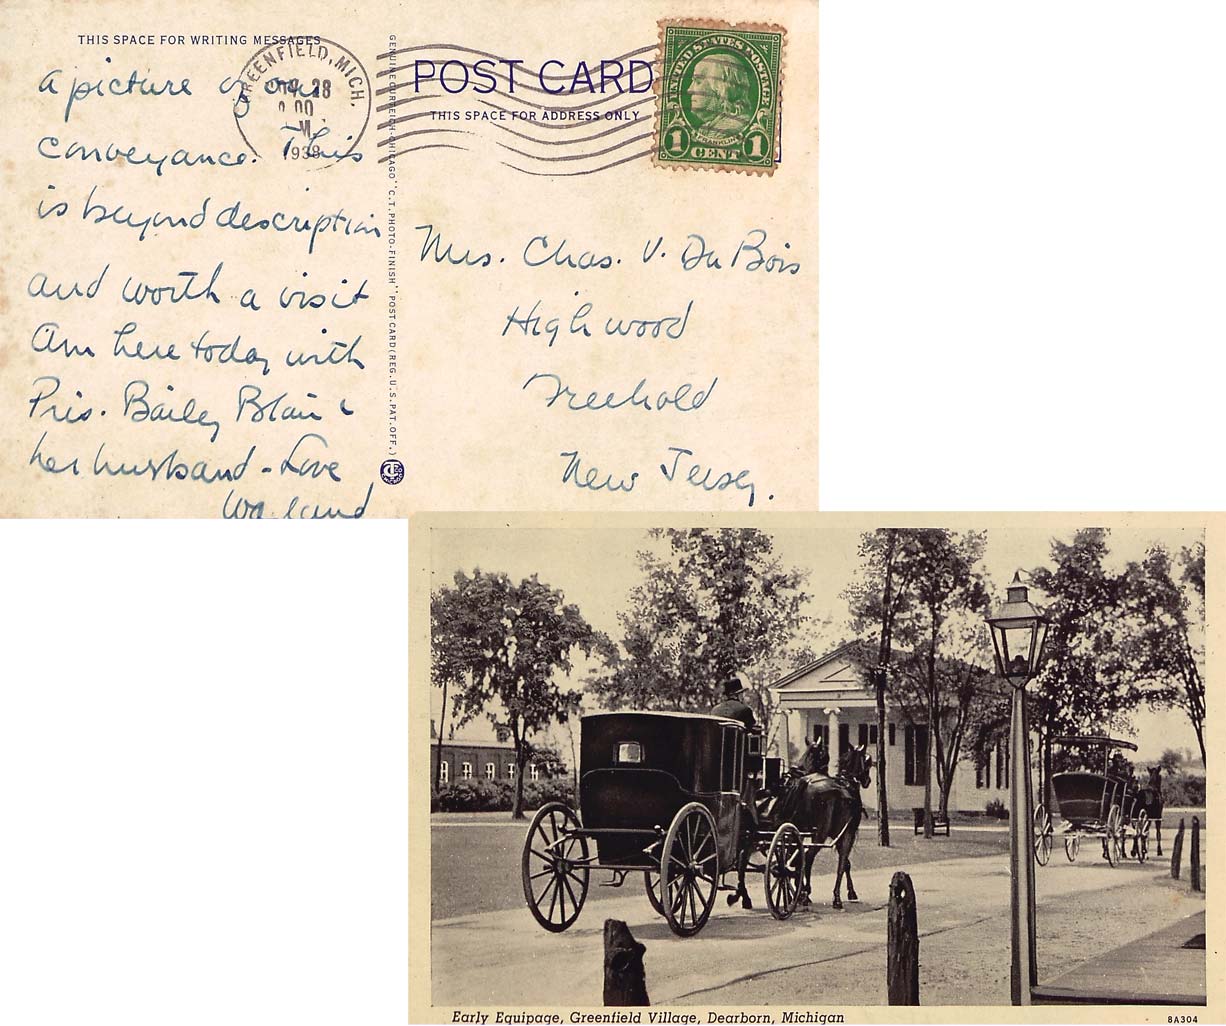 THIS SPACE FOR WRITING MESSAGES
a picture of our
conveyance. This
is beyond description
and worth a visit
Am here today with
Pris. Bailey Blair &
her husband - Love
GREENFIELD, MICH.
28
1938
GENUINE CURTEICH-CHICAGO "C.T. PHOTO-FINISH" POST CARD (REG. U.S. PAT. OFF.)
POST CARD
THIS SPACE FOR ADDRESS ONLY
UNITED STATES POSTAGE
FRANKLIN
1 CENT 1
Mrs. Chas. V. Du Bois
Highwood
Freehold
New Jersey.
Early Equipage, Greenfield Village, Dearborn, Michigan
8A304